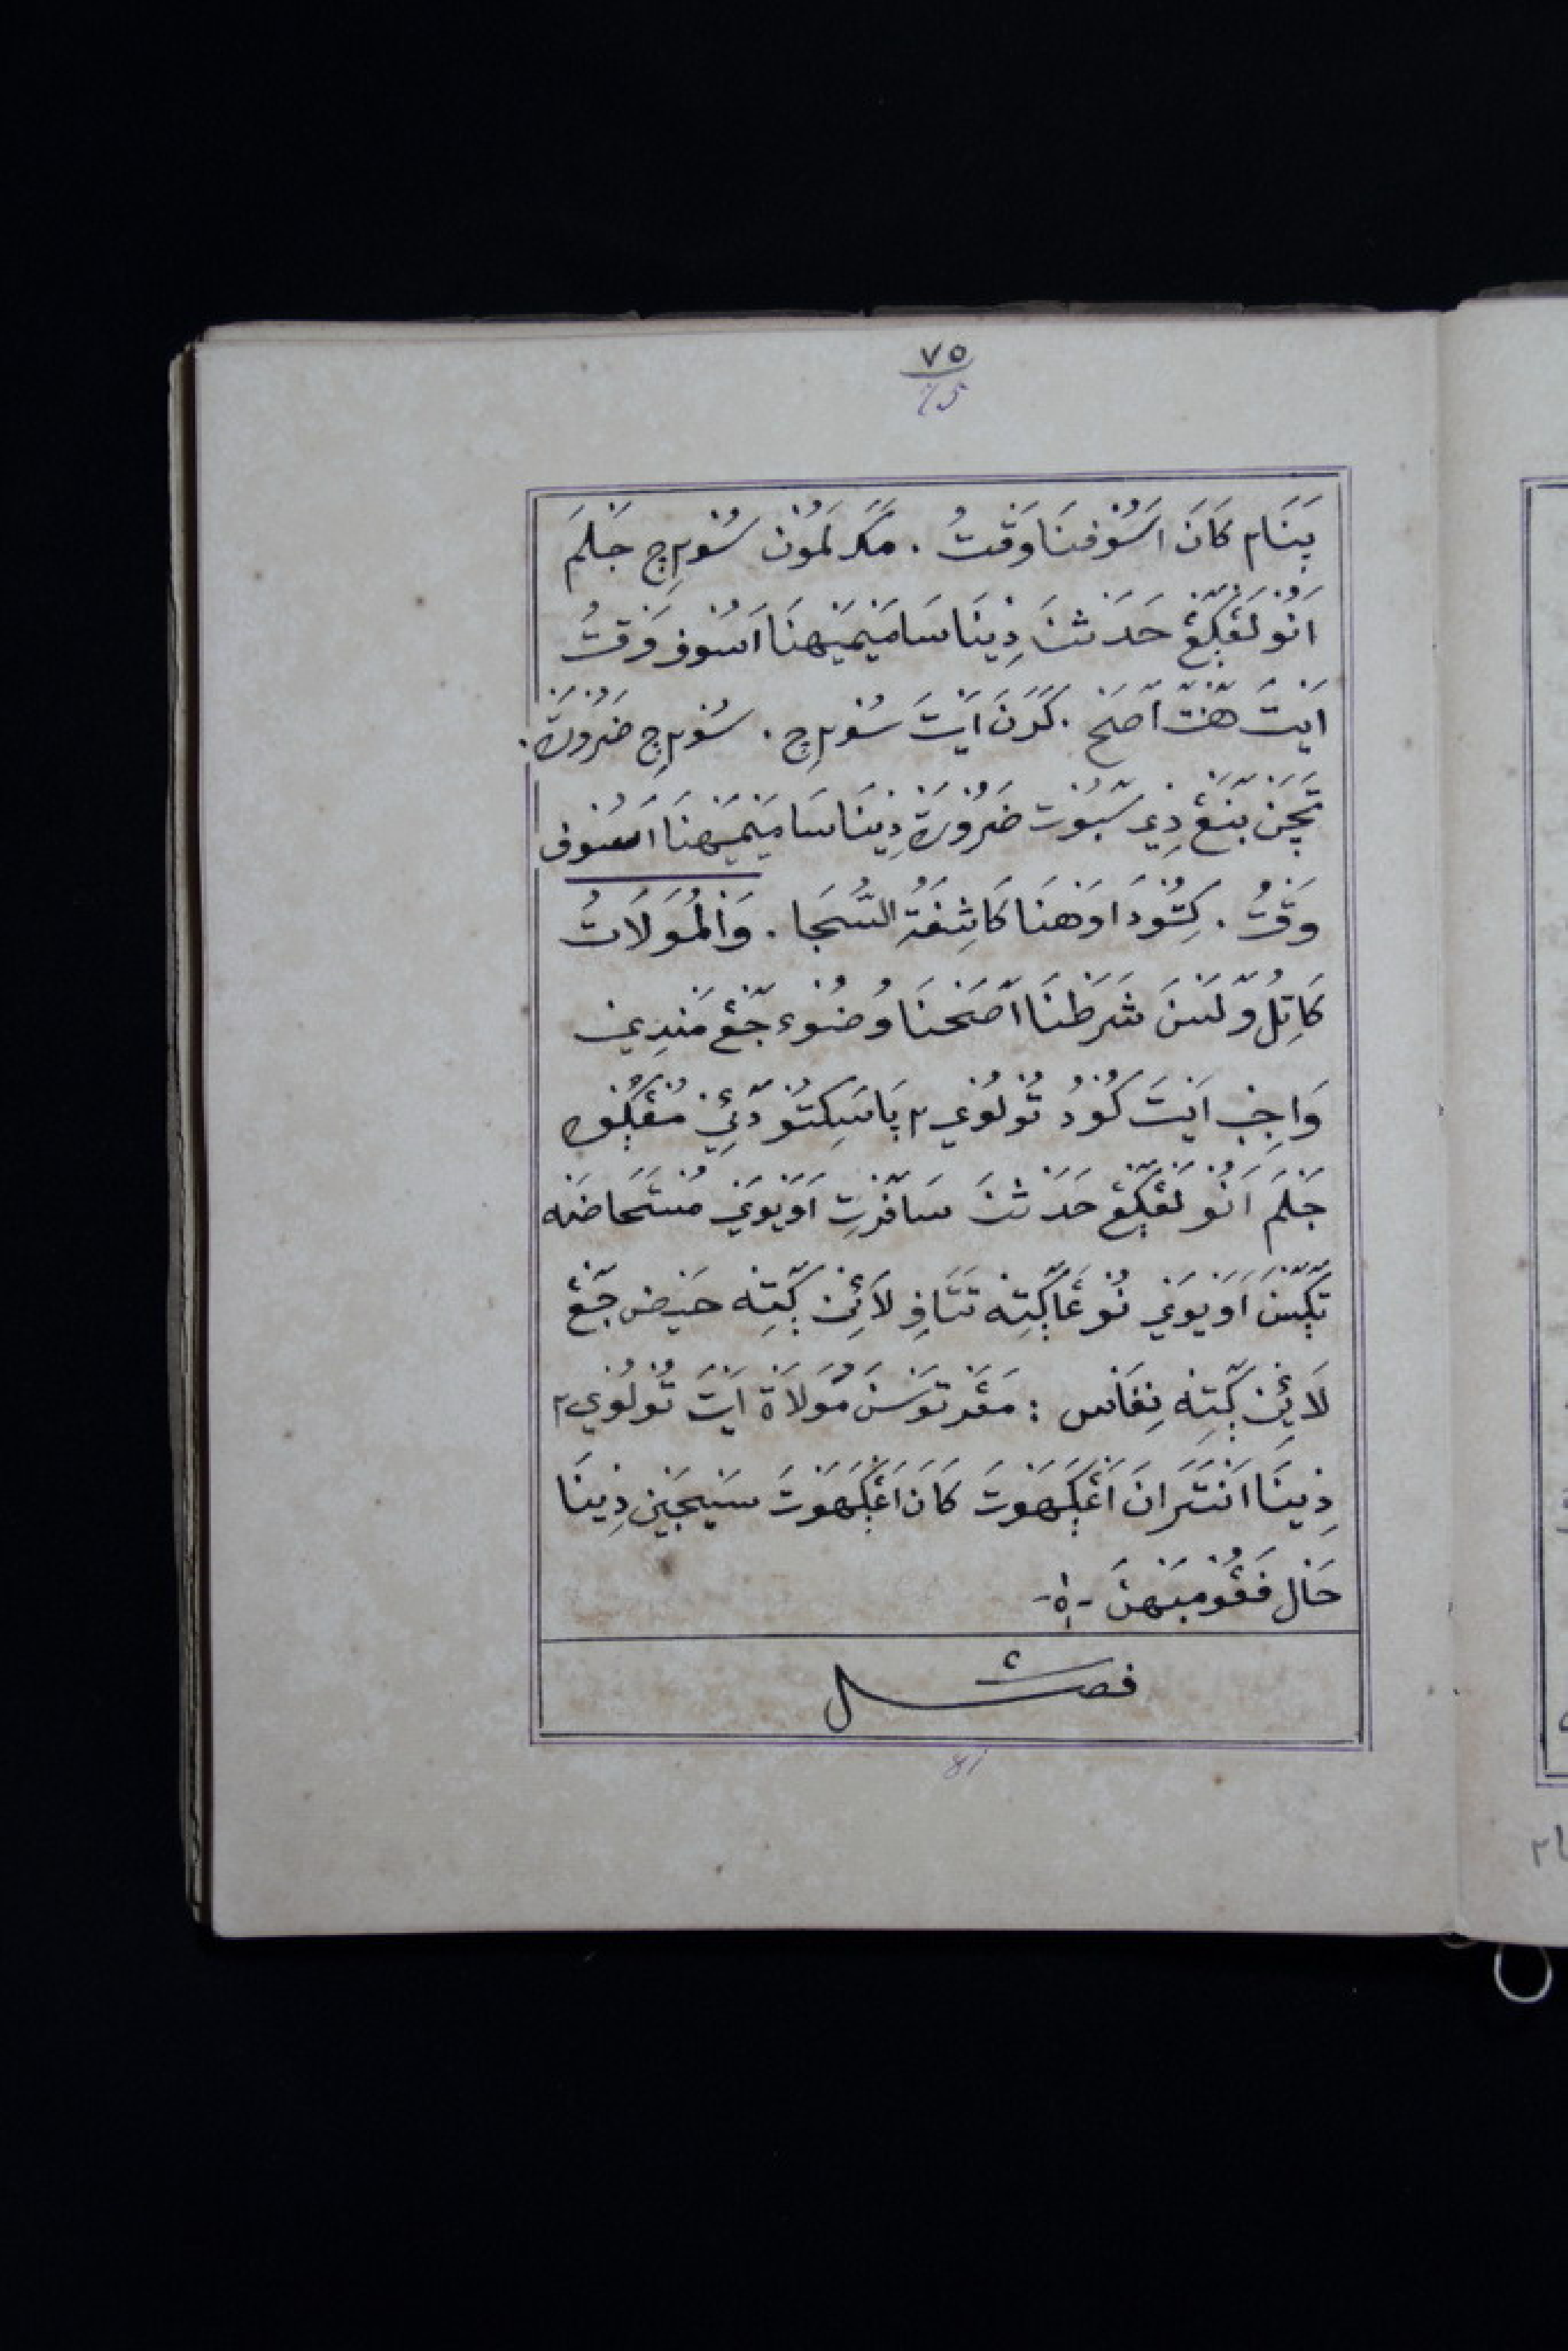 ٧٥
75
بٜيَنَام كَانَ اَسُوْفنَا وَقْتُ . مَكَ لَمُوْن سُوْمٜرٜچ جَلَمَ
اَنُوْ لَڠْݢٜڠ حَدَثنَ دِيْنَا سَامَيْمَيْهنَا اَسُوْف وَقْتُ
اَيْتَ هٓنْتٓ آصَح . كَرَنَ اَيْتَ سُوْمٜرٜچ . سُوْمٜرٜچ ضَرُوْرَة .
تٓچَن بٓنَڠ دِي سٓبُوْت ضَرُوْرَة دِيْنَا سَامَيْمَيْهنَا اَسُوْف
وَقْتُ . كِتُوْ دَاوَهنَا كَاشِفَةُ السَّجَا . وَالْمُوَلَاتُ
كَاتِلُوْ لَسَنَ شَرَطنَا آصَحنَا وُضُوْء جٓڠ مَنْدِي
وَاجِب اَيْتَ كُوْدُ تُوْلُوْي٢ بَاسَ كِتُوْ دٓئِيْ مُڠْݢُوْه
جَلَمَ اَنُوْ لَڠْݢٓڠ حَدَثنَ سَافٓرْتِ اَوَيْوَي مُسْتَحَاضَه
تٓݢٓسنَ اَوَيْوَي نُوْ ݢٓتِه تَتَافِ لَائِن ݢٓتِه حَيْض جٓڠ
لَائِن ݢٓتِه نِفَاس : مَڠْرتُوْسَنَ مُوَلَاة اَيْتَ تُوْلُوْي٢
دِيْنَا اَنْتَرَانَ اَڠْݢَهَوْتَ كَانَ اَڠْݢَهَوْتَ سَيْجَيْن دِيْنَا
حَال فَڠُوْمبَهنَ -٥-
فصل
81